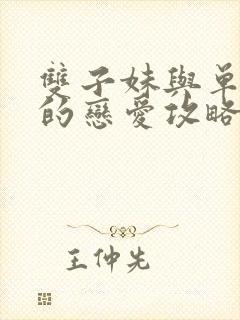 雙子妹與單
的戀愛攻略
王仲先